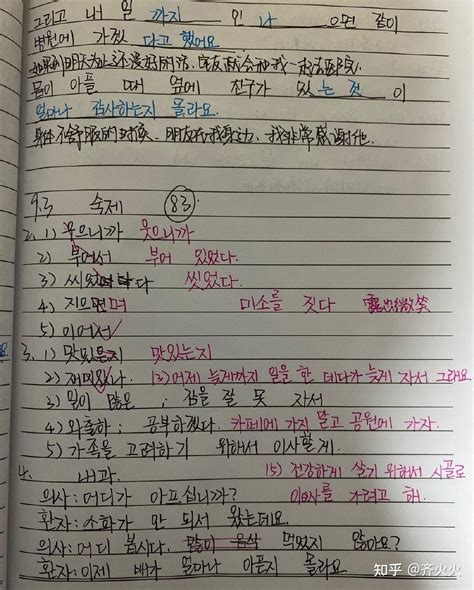 그리고 내일 까지 안 나 으면 같이
병원에 가겠 다고 했어요
如果到明天为止还没好的话,朋友就会和我一起去医院
몸이 아플 때 옆에 친구가 있 는 것 이
얼마나 감사하는지 몰라요.
身体不舒服的时候、朋友在我身边、我非常感谢他.
9.3 숙제 83
2. 1) 우으니까 웃으니까
2) 부어서 부어 있었다.
3) 씻었다.
4) 지으면며 미소를 짓다 露出微笑
5) 이어서
3. 1) 맛있은지 맛있는지
2) 13) 어제 늦게까지 일을 한 데다가 늦게 자서 그래요
3) 일이 많은 ; 잠을 잘 못 자서
4) 외출하 ; 공부하겠다. 카페에 가지 말고 공원에 가자.
5) 가족을 고려하기 위해서 이사할게.
4. 내과. 15) 건강하게 살기 위해서 시골로
의사: 어디가 아프십니까? 이사를 가려고 해.
환자: 소화가 안 되서 왔는데요.
의사: 어디 봅시다. 많이 음식 먹었지 않아요?
환자: 이제 배가 얼마나 아픈지 몰라요
知乎 @齐火火